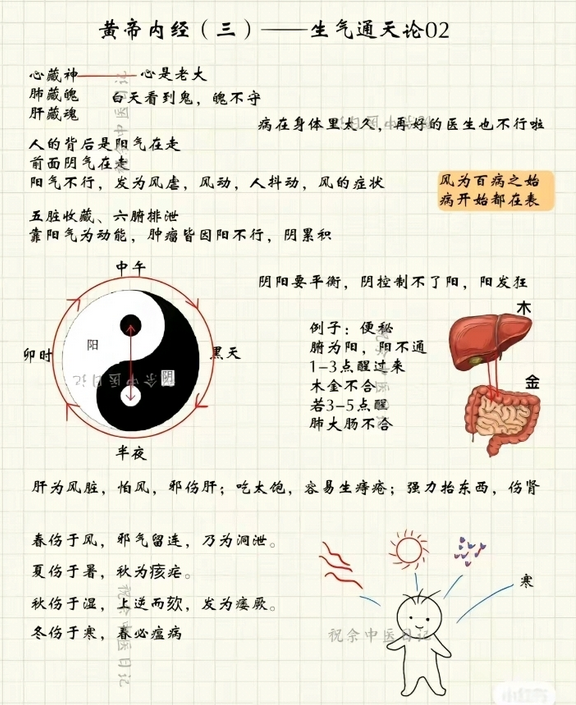 黄帝内经（三）——生气通天论02
心藏神——心是老大
肺藏魄 白天看到鬼，魄不守
肝藏魂
病在身体里太久，再好的医生也不行啦
人的背后是阳气在走
前面阴气在走
阳气不行，发为风虐，风动，人抖动，风的症状
风为百病之始
病开始都在表
五脏收藏、六腑排泄
靠阳气为动能，肿瘤皆因阳不行，阴累积
中午
阳
阴
卯时
黑天
半夜
阴阳要平衡，阴控制不了阳，阳发狂
例子：便秘
腑为阳，阳不通
1-3点醒过来
木金不合
若3-5点醒
肺大肠不合
木
金
肝为风脏，怕风，邪伤肝；吃太饱，容易生痔疮；强力抬东西，伤肾
春伤于风，邪气留连，乃为洞泄。
夏伤于暑，秋为痎疟。
秋伤于湿，上逆而欬，发为痿厥。
冬伤于寒，春必瘟病
寒
祝余中医日记
祝余中医日记
祝余中医日记
祝余中医日记
小红书